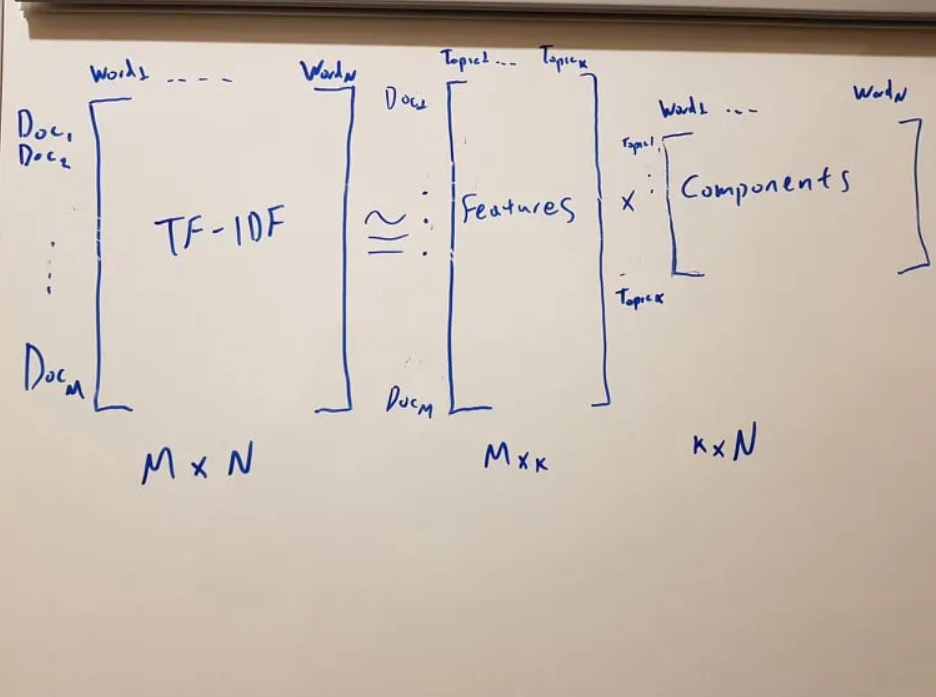 Word1 .... WordN
Doc1
Doc2
⋮
DocM
TF-IDF
M x N
≅
Topic1 ... TopicK
Doc1
⋮
DocM
Features
M x K
x
Word1 ... WordN
Topic1
⋮
TopicK
Components
K x N